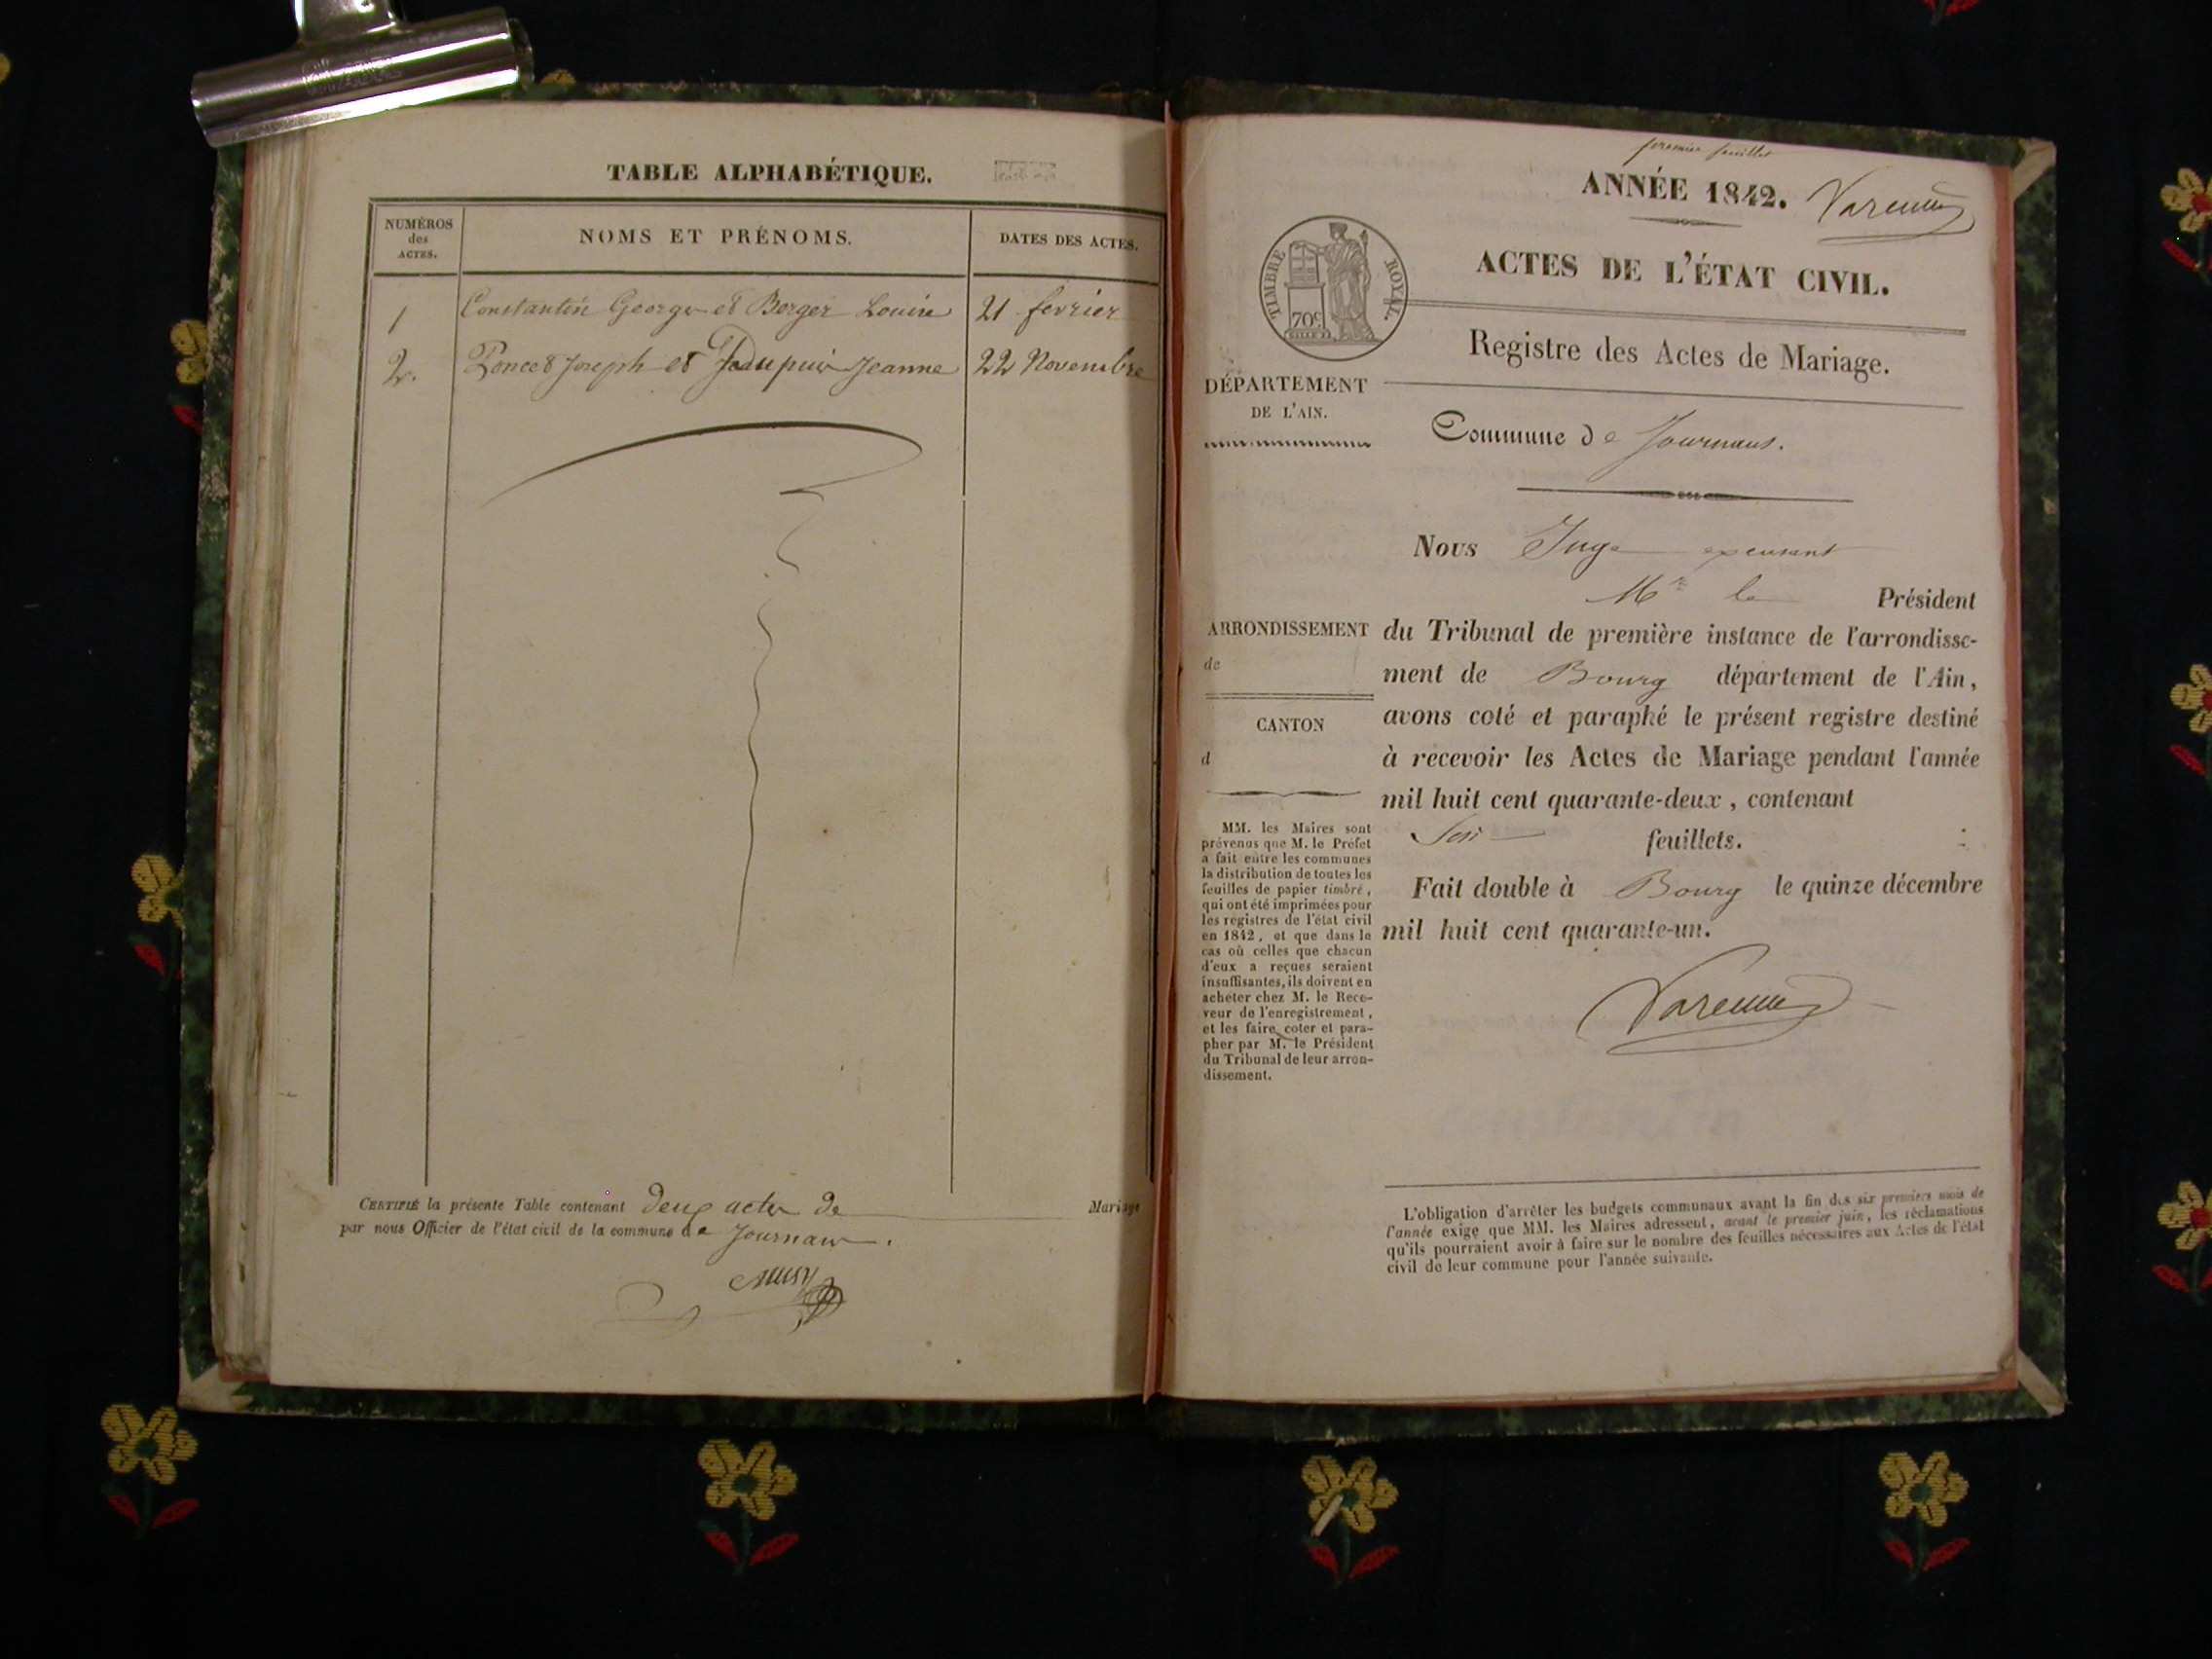 TABLE ALPHABÉTIQUE.
NUMÉROS
des
ACTES.
NOMS ET PRÉNOMS.
DATES DES ACTES.
1 Constantin George et Berger Louise 21 fevrier
2. Poncet Joseph et Jeanne 22 Novembre
CERTIFIÉ la présente Table contenant deux actes de Mariage
par nous Officier de l'état civil de la commune de Journans.
Musy
premier feuillet
ANNÉE 1842. Varenne
ACTES DE L'ÉTAT CIVIL.
TIMBRE ROYAL.
70c
Registre des Actes de Mariage.
DÉPARTEMENT
DE L'AIN.
Commune de Journans.
Nous Juge
Mr le Président
ARRONDISSEMENT
de
du Tribunal de première instance de l'arrondisse-
ment de Bourg département de l'Ain,
CANTON
d
avons coté et paraphé le présent registre destiné
à recevoir les Actes de Mariage pendant l'année
mil huit cent quarante-deux, contenant
feuillets.
Fait double à Bourg le quinze décembre
mil huit cent quarante-un.
Varenne
MM. les Maires sont
prévenus que M. le Préfet
a fait entre les communes
la distribution de toutes les
feuilles de papier timbré,
qui ont été imprimées pour
les registres de l'état civil
en 1842, et que dans le
cas où celles que chacun
d'eux a reçues seraient
insuffisantes, ils doivent en
acheter chez M. le Rece-
veur de l'enregistrement,
et les faire coter et para-
pher par M. le Président
du Tribunal de leur arron-
dissement.
L'obligation d'arrêter les budgets communaux avant la fin des six premiers mois de
l'année exige que MM. les Maires adressent, avant le premier juin, les réclamations
qu'ils pourraient avoir à faire sur le nombre des feuilles nécessaires aux Actes de l'état
civil de leur commune pour l'année suivante.